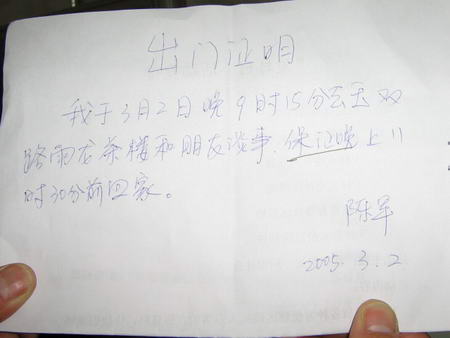 出门证明
我于3月2日晚9时15分去玉双
路雨在茶楼和朋友谈事.保证晚上11
时30分前回家。
陈军
2005.3.2